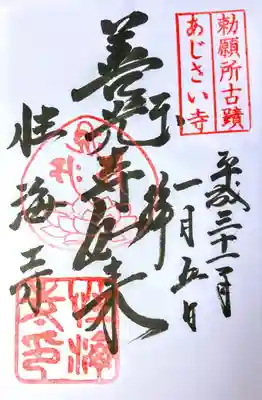 勅願所古蹟
あじさい寺
奉拝
平成三十一年
一月五日
善光寺如来
性海寺